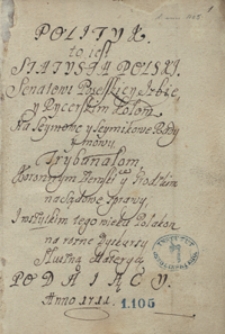 POLITYK.
to iest
STATYSTA POLSKI.
Senatowi Poselskiey Izbie,
y Rycerskim Kołom,
Na Seymowe y Seymikowe Rady
y mowy
Trybunałom,
Ziemskim y Grodzkim
na Sądowe Sprawy,
I wszytkim tego wieku Polakom
na rożne Dyskursy
Słuszną Materyą
PODAIĄCY.
Anno 1711.
1.105